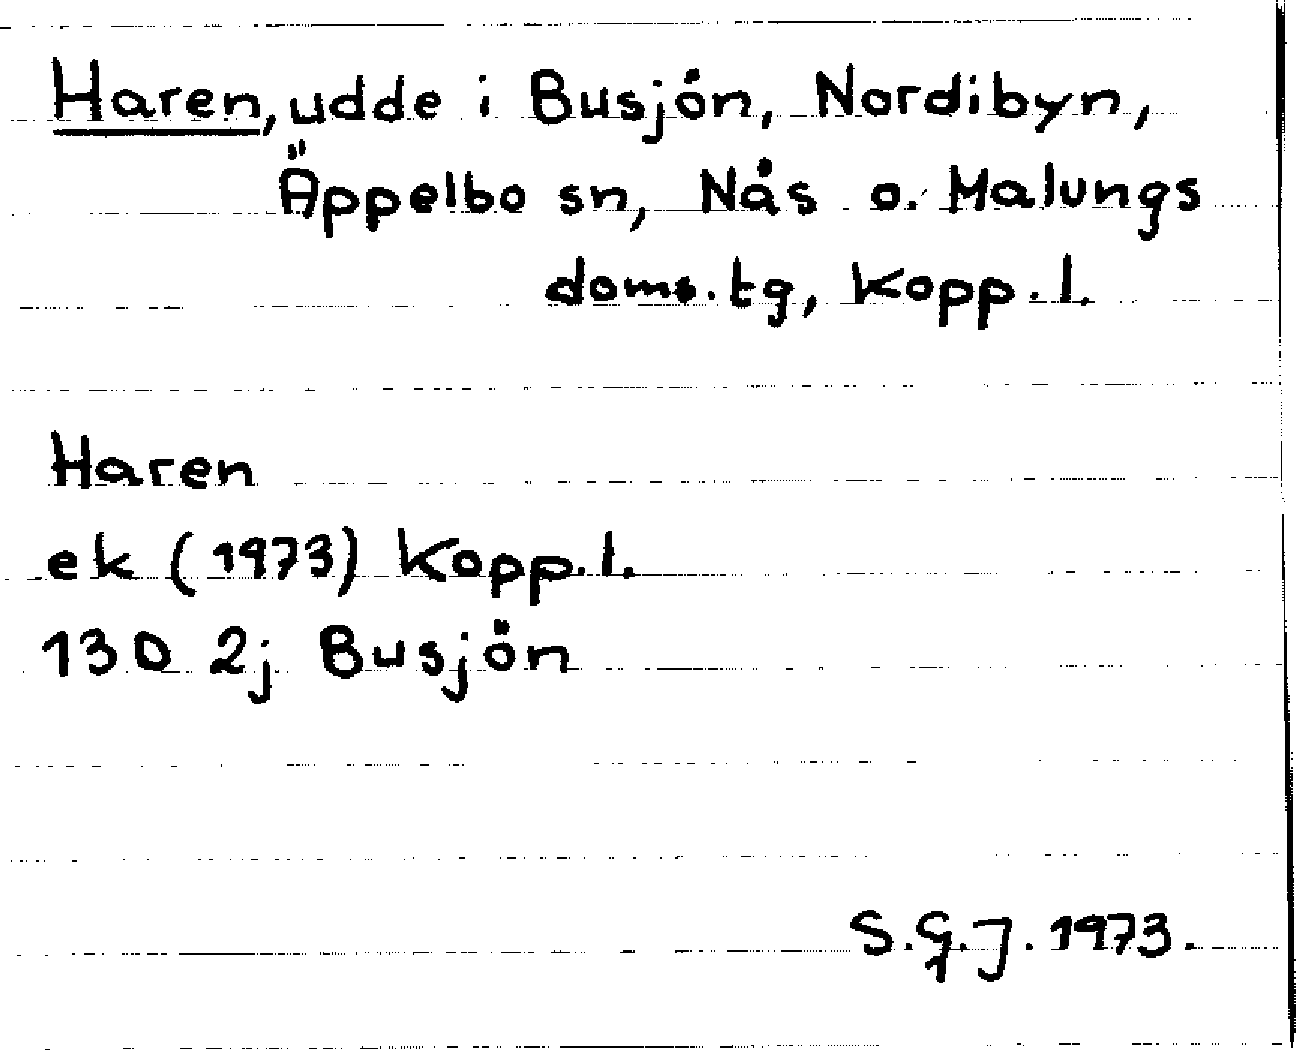 Haren, udde i Busjön, Nordibyn,
Äppelbo sn, Nås o. Malungs
doms.tg, Kopp.l.
Haren
ek (1973) Kopp.l.
13D 2j Busjön
S.G.J. 1973.